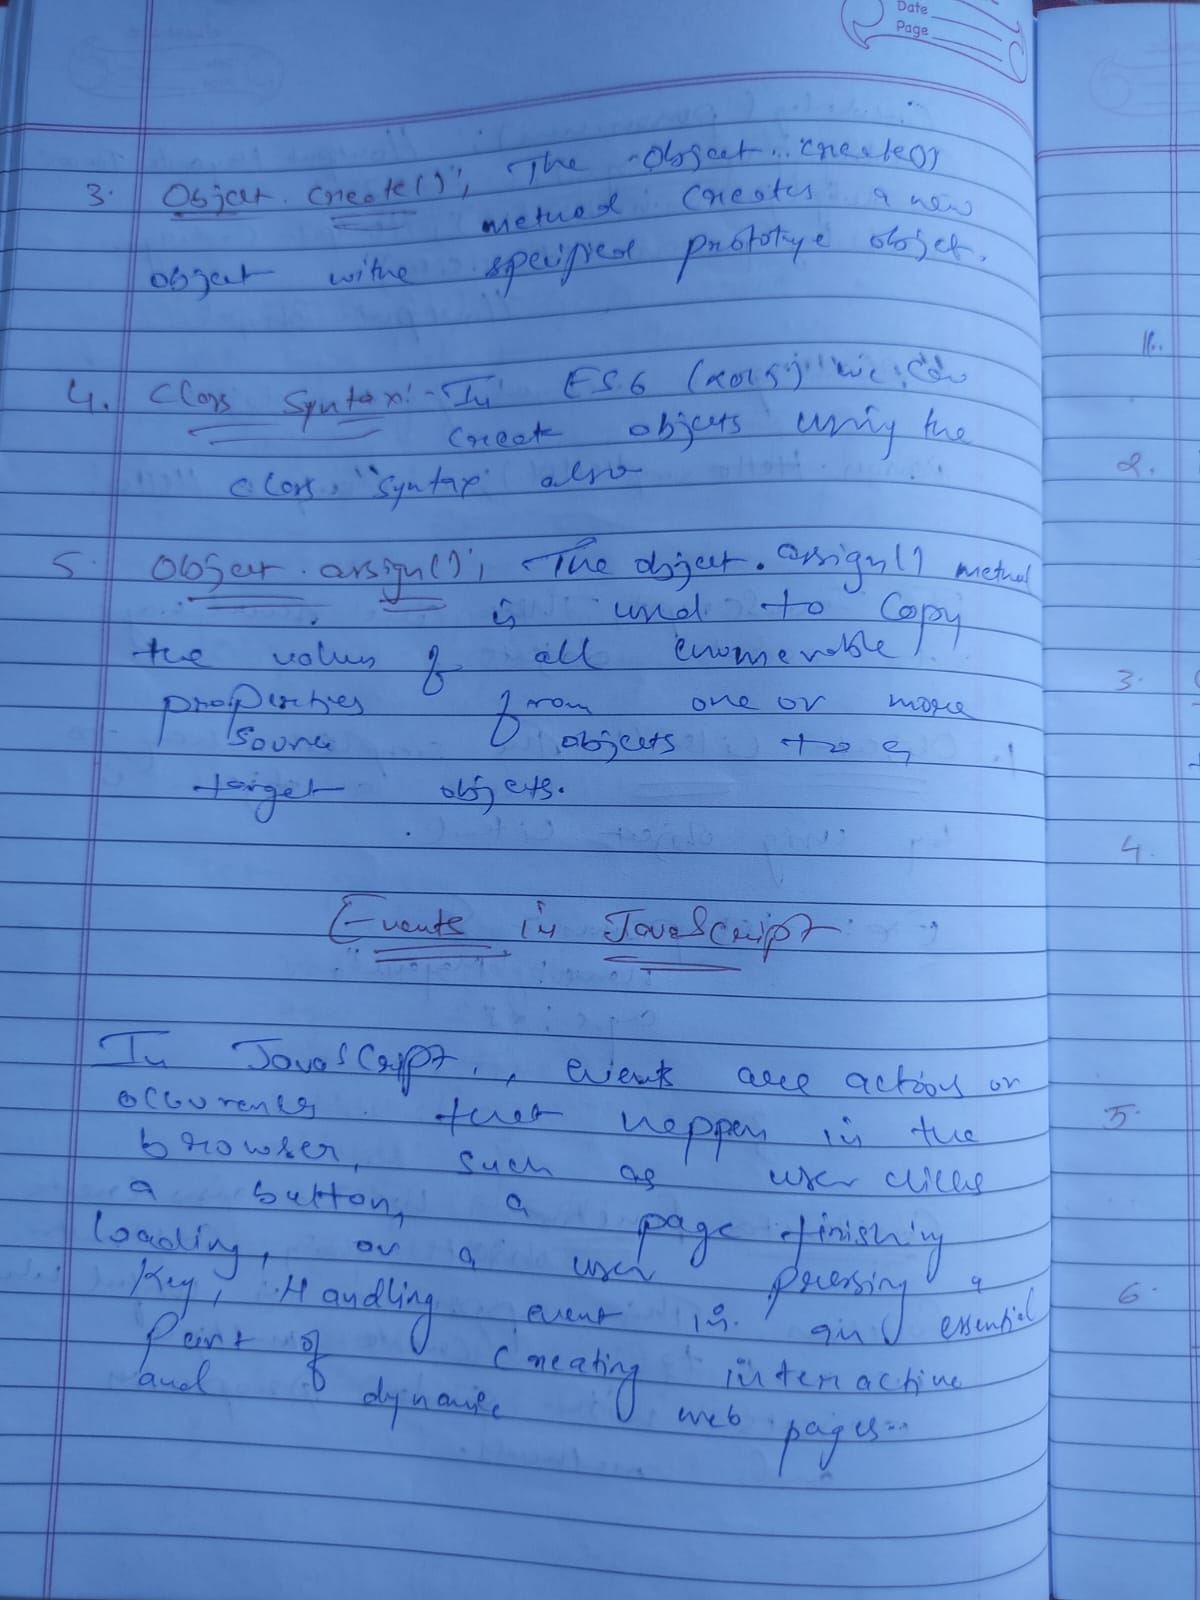 Date
Page
3. Object. Create()", The Object. create()
method creates a new
object withe specified prototype object.
4. Class Syntax:- In ES6 (2015) we can
create objects using the
class, "syntax" also
5. Object. assign()", The object. assign() method
is used to copy
the values of all enumerable
properties from one or more
source objects to a
target objects.
Events in JavaScript
In JavaScript, events are actions or
occurences that happen in the
browser, such as user clicks
a button, a page finishing
loading, or a user pressing a
Key, Handling event is an essential
Part of creating interactive
and dynamic web pages...
11.
2.
3.
4.
5.
6.